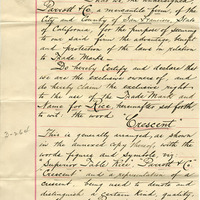 Parrott & Co. a mercantile firm of the
City and County of San Francisco, State
of California, for the purpose of securing
to our said firm the advantage, benefit
and protection of the laws in relation
to Trade Marks.
Do hereby Certify and declare that
we are the exclusive owners of, and
do hereby claim the exclusive right
to the use of the Trade Mark and
Name for Rice, hereinafter set forth
to wit: the word
"Crescent"
This is generally arranged, as shown
in the annexed copy thereof, with the
words, Figures and Symbols, viz:
Superior Table Rice, Parrott & Co
Crescent and a representation of a
Crescent, being used to denote and
distinguish a certain kind, quality,